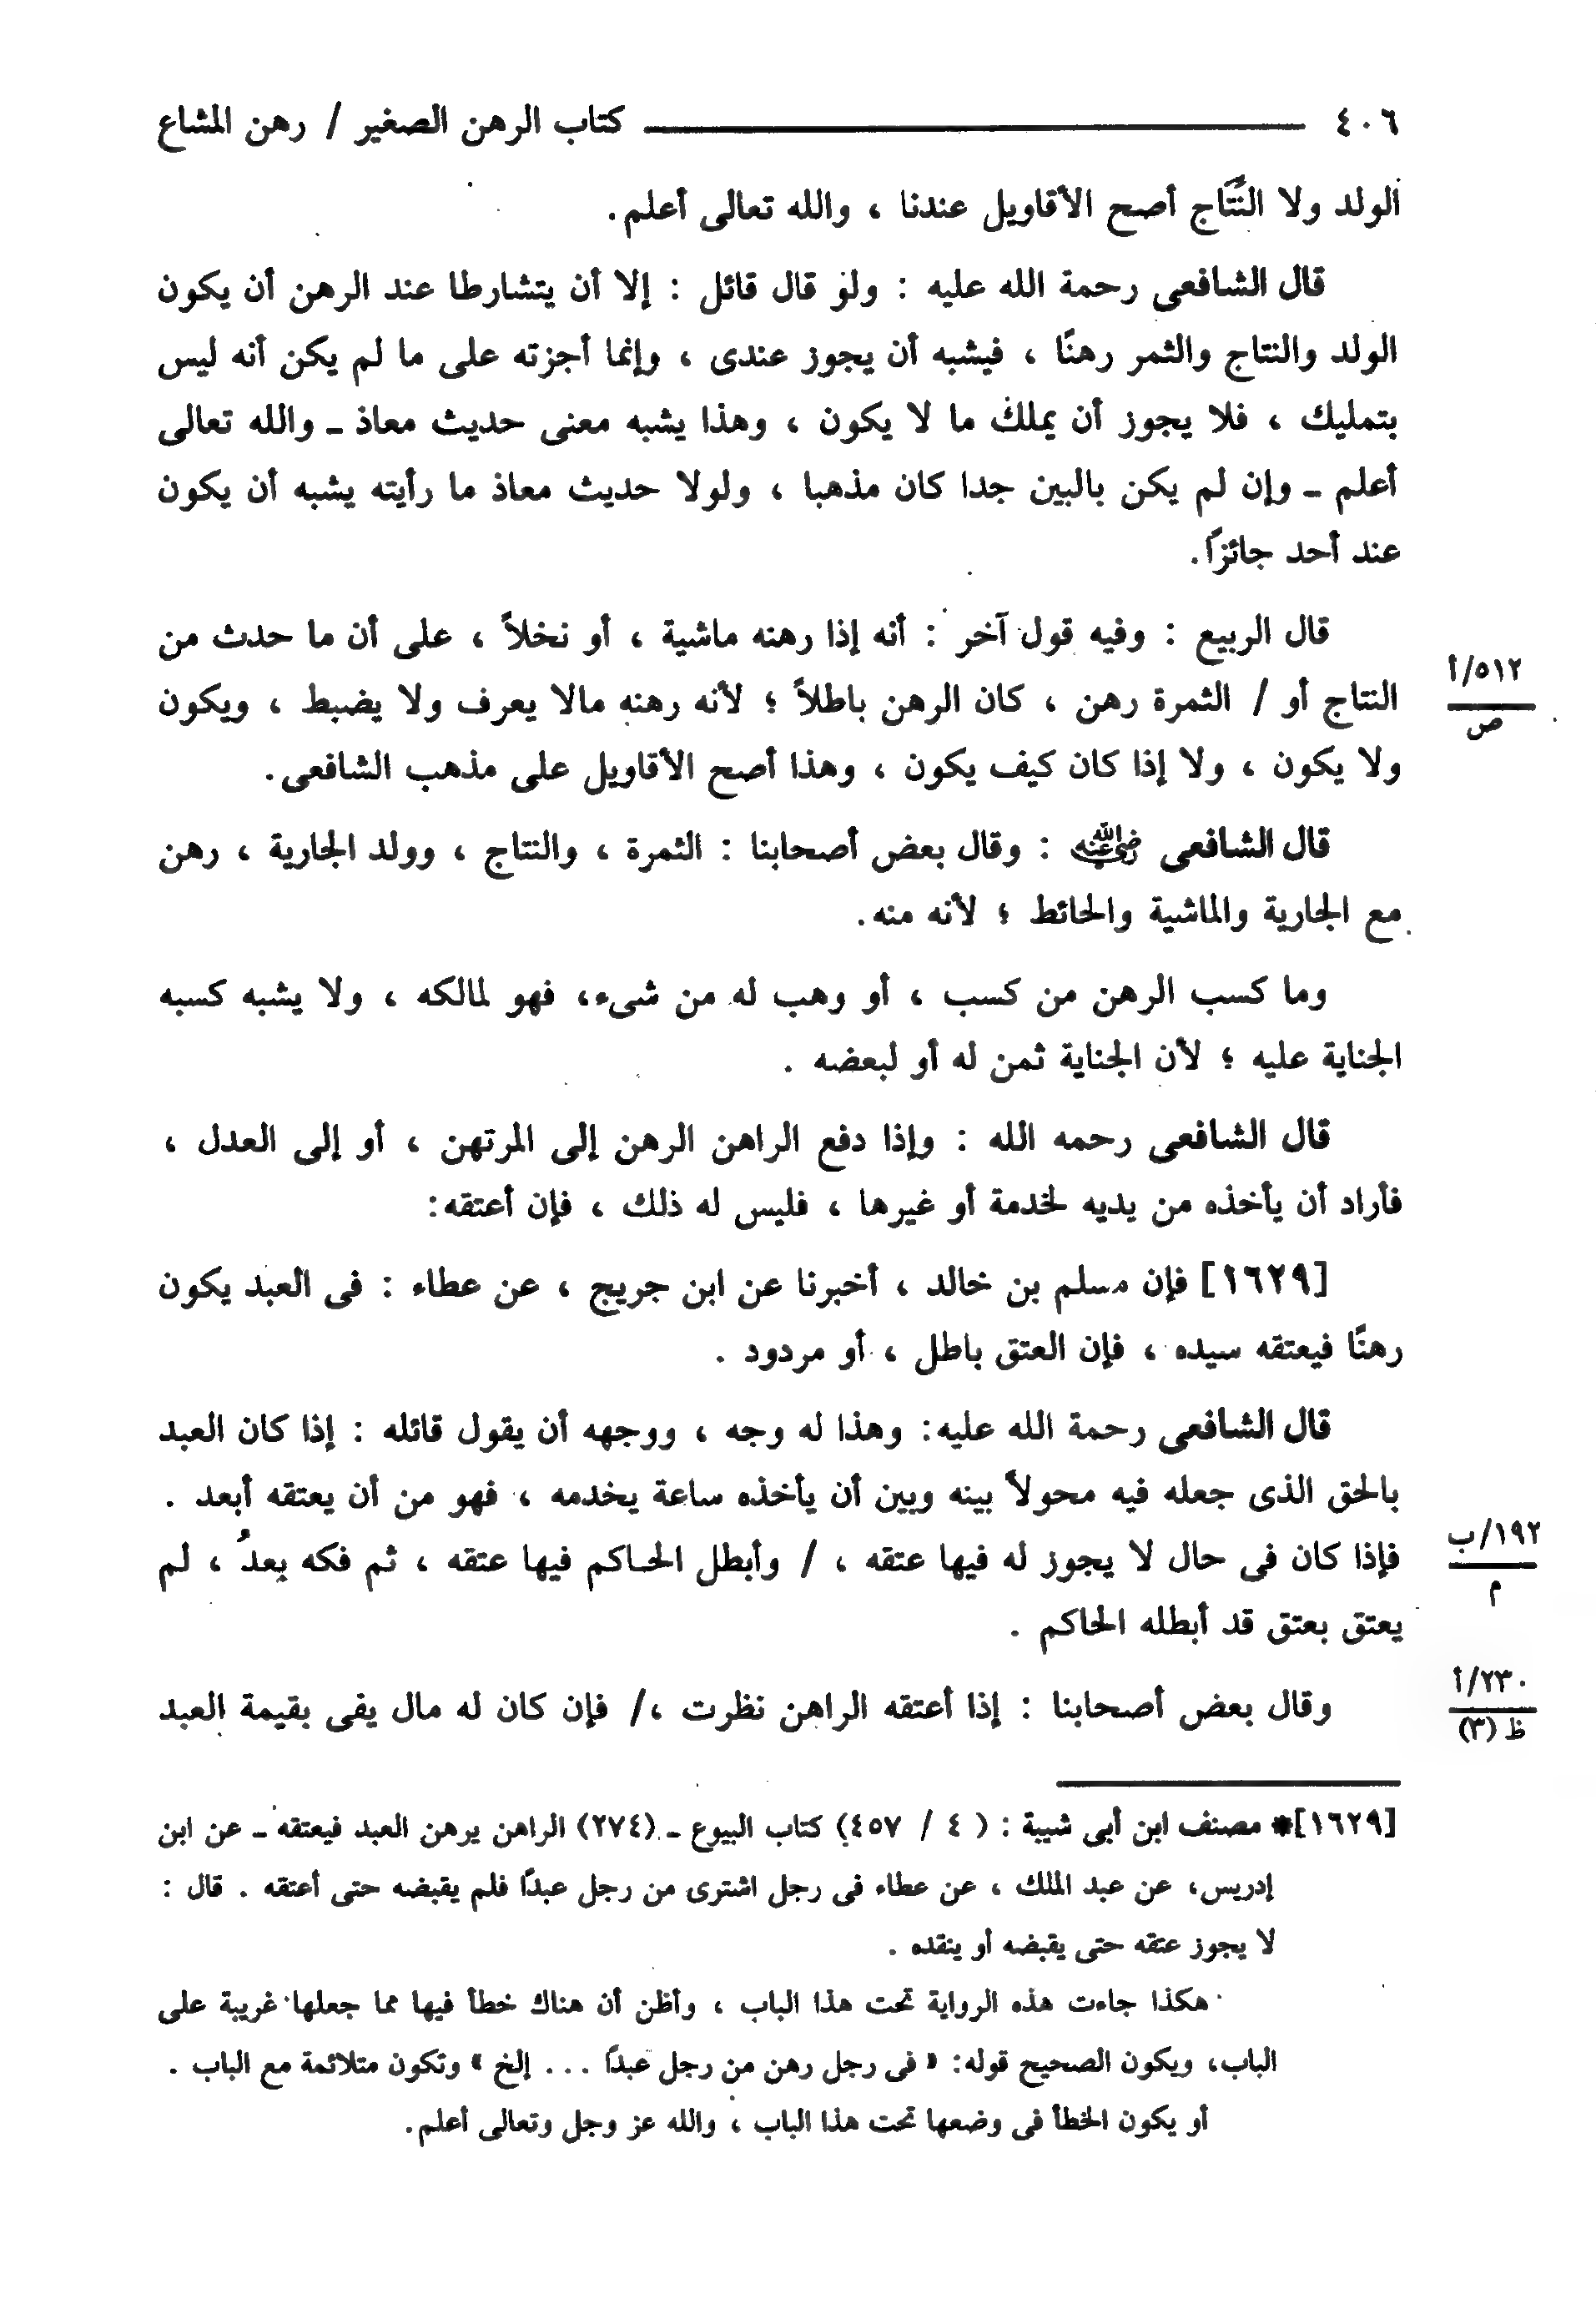 ٤٠٦ كتاب الرهن الصغير / رهن المشاع
الولد ولا النِّتَاج أصح الأقاويل عندنا ، والله تعالى أعلم.
قال الشافعى رحمة الله عليه : ولو قال قائل : إلا أن يتشارطا عند الرهن أن يكون
الولد والنتاج والثمر رهنًا ، فيشبه أن يجوز عندى ، وإنما أجزته على ما لم يكن أنه ليس
بتمليك ، فلا يجوز أن يملك ما لا يكون ، وهذا يشبه معنى حديث معاذ ـ والله تعالى
أعلم ـ وإن لم يكن بالبين جدا كان مذهبا ، ولولا حديث معاذ ما رأيته يشبه أن يكون
عند أحد جائزًا.
قال الربيع : وفيه قول آخر : أنه إذا رهنه ماشية ، أو نخلاً ، على أن ما حدث من
النتاج أو / الثمرة رهن ، كان الرهن باطلاً ؛ لأنه رهنه مالا يعرف ولا يضبط ، ويكون
٥١٢/أ
ص
ولا يكون ، ولا إذا كان كيف يكون ، وهذا أصح الأقاويل على مذهب الشافعى.
قال الشافعى رضي الله عنه : وقال بعض أصحابنا : الثمرة ، والنتاج ، وولد الجارية ، رهن
مع الجارية والماشية والحائط ؛ لأنه منه.
وما كسب الرهن من كسب ، أو وهب له من شىء، فهو لمالكه ، ولا يشبه كسبه
الجناية عليه ؛ لأن الجناية ثمن له أو لبعضه .
قال الشافعى رحمه الله : وإذا دفع الراهن الرهن إلى المرتهن ، أو إلى العدل ،
فأراد أن يأخذه من يديه لخدمة أو غيرها ، فليس له ذلك ، فإن أعتقه:
[١٦٢٩] فإن مسلم بن خالد ، أخبرنا عن ابن جريج ، عن عطاء : فى العبد يكون
رهنًا فيعتقه سيده ، فإن العتق باطل ، أو مردود .
قال الشافعى رحمة الله عليه: وهذا له وجه ، ووجهه أن يقول قائله : إذا كان العبد
بالحق الذى جعله فيه محولاً بينه وبين أن يأخذه ساعة يخدمه ، فهو من أن يعتقه أبعد .
فإذا كان فى حال لا يجوز له فيها عتقه ، / وأبطل الحاكم فيها عتقه ، ثم فكه بعدُ ، لم
١٩٢/ب
م
يعتق بعتق قد أبطله الحاكم .
وقال بعض أصحابنا : إذا أعتقه الراهن نظرت ،/ فإن كان له مال يفى بقيمة العبد
٢٣٠/أ
ظ (٣)
[١٦٢٩]* مصنف ابن أبى شيبة : ( ٤ / ٤٥٧) كتاب البيوع ـ (٢٧٤) الراهن يرهن العبد فيعتقه ـ عن ابن
إدريس، عن عبد الملك ، عن عطاء فى رجل اشترى من رجل عبدًا فلم يقبضه حتى أعتقه . قال :
لا يجوز عتقه حتى يقبضه أو ينقده .
هكذا جاءت هذه الرواية تحت هذا الباب ، وأظن أن هناك خطأ فيها مما جعلها غريبة على
الباب، ويكون الصحيح قوله: « فى رجل رهن من رجل عبدًا . . . إلخ » وتكون متلائمة مع الباب .
أو يكون الخطأ فى وضعها تحت هذا الباب ، والله عز وجل وتعالى أعلم.